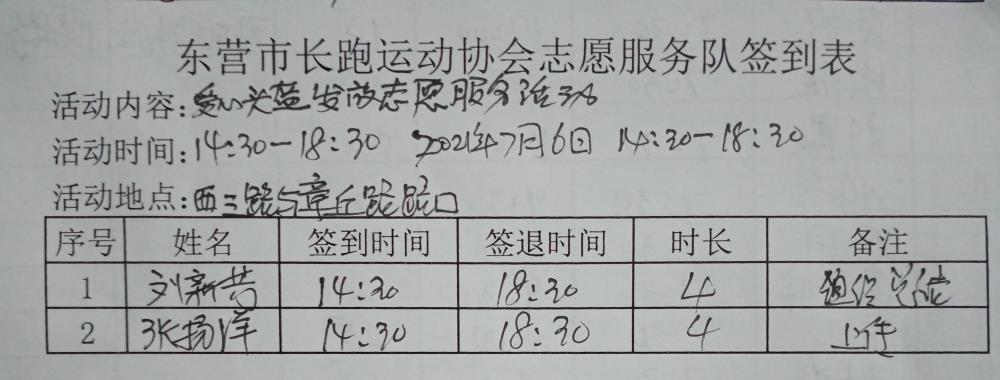 东营市长跑运动协会志愿服务队签到表
活动内容:爱心头盔发放志愿服务活动
活动时间:14:30-18:30 2021年7月6日 14:30-18:30
活动地点:西三路与章丘路路口
序号 姓名 签到时间 签退时间 时长 备注
1 刘新昔 14:30 18:30 4
2 张扬洋 14:30 18:30 4